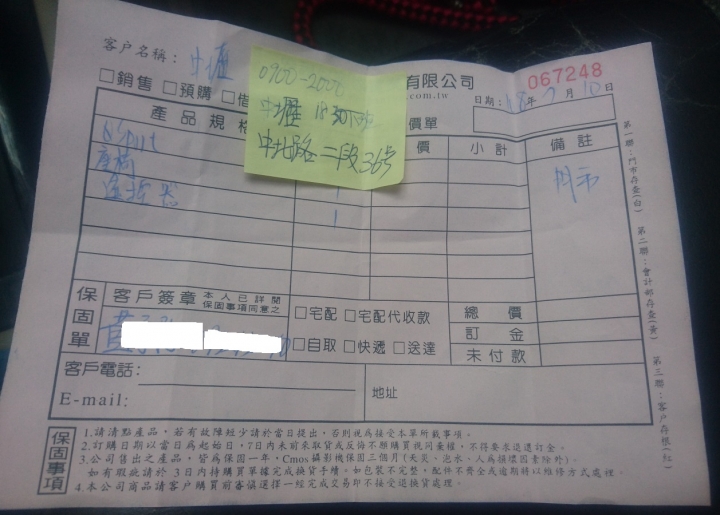 客戶名稱: 中壢
有限公司
067248
.com.tw
日期: 18年7月10日
□銷售 □預購 □借
價單
0900-2000
中壢 18:30下班
中北路二段36号
產品規格
價
小計
備註
座椅
1
1
門市
第一聯:門市存查(白)
第二聯:會計部存查(黃)
第三聯:客戶存根(紅)
保固單
客戶簽章 本人已詳閱保固事項同意之
□宅配 □宅配代收款
□自取 □快遞 □送達
總價
訂金
未付款
客戶電話:
E-mail:
地址
保固事項
1.請清點產品,若有故障短少請於當日提出,否則視為接受本單所載事項。
2.訂購日期以當日為起始日,7日內未前來取貨或反悔不願購買視同棄權,不得要求退還訂金。
3.公司售出之產品,皆為保固一年,Cmos攝影機保固三個月(天災、泡水、人為損壞因素除外)。
如有瑕疵請於3日內持購買單據完成換貨手續。如包裝不完整,配件不齊全或逾期將以維修方式處理。
4.本公司商品請客戶購買前審慎選擇一經完成交易即不接受退換貨處理。